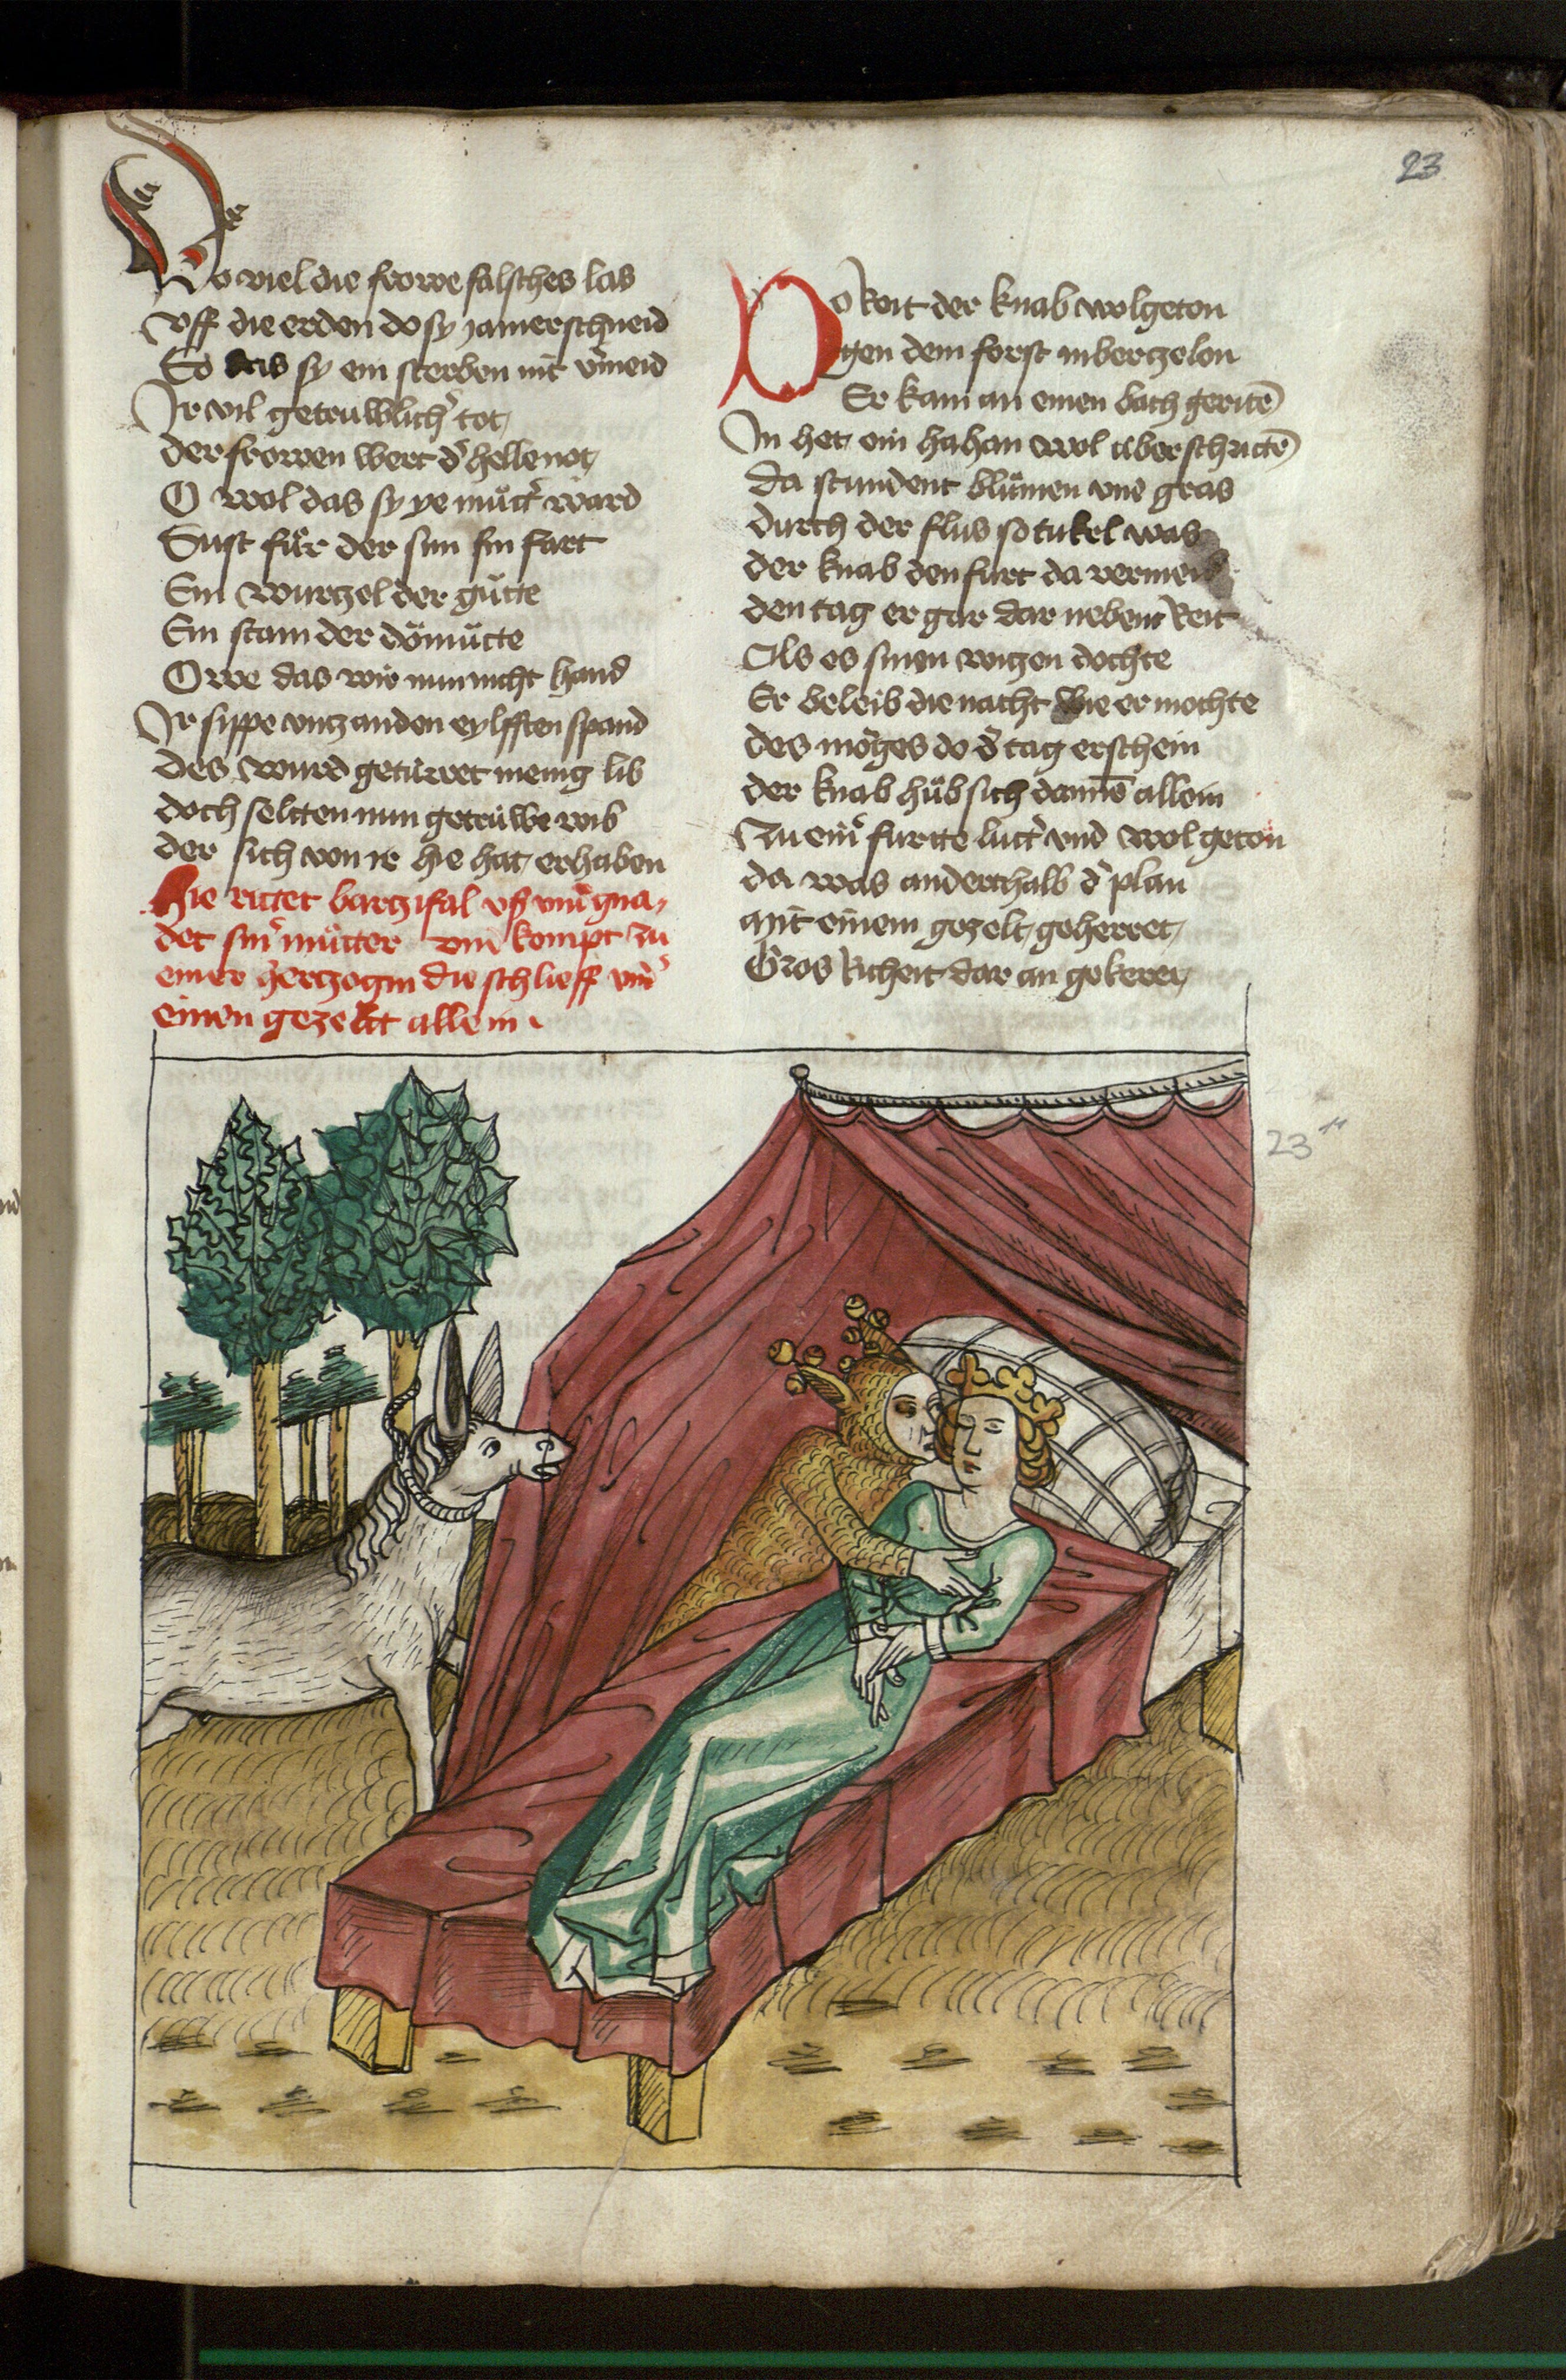 23
Do viel die frowe falsches las
vff die erden do sy jamer schneid
So das sy ein sterben nit v̾meid
Ir vil getruwlich̾ tot
der frowen wert d̾ helle not
O wol das sy ye mu̇t̾ ward
Sust fu̇r der sun sin fart
Ein wurczel der gu̇tte
Ein stam der dömu̇tte
Owe das wir nun nicht hand
Ir sippe vncz an den eylfften spand
des wurd getu̇rret menig lib
doch soltten nun getru̇we wib
der sich von ir hie hat erhaben
Hie rittet barczifal vß vnd gna
det sin̾ mu̇tter vnd kompt zu
einer herczogin die schlieff vnd̾
einen gezeltt allein
Do Reit der knab wolgeton
gen dem forst in berczelon
Er kam an einen bach geritē
In het ein hahan wol u̇berschrittē
da stundent blu̇men vnd gras
durch der flus so tukel was
der knab den furt da vermeid
den tag er gar dar nebent Reit
Als es sinen wiczen dochte
Er beleib die nacht wie er mochte
des mo̾ges do d̾ tag erschein
der knab hu̇b sich dannē allein
Zu ein̾ furtte lutt̾ vnd wol geton
da was anderthalb d̾ plan
Mit einem gezelt geherret
Gros Richeit dar an gekeret
23